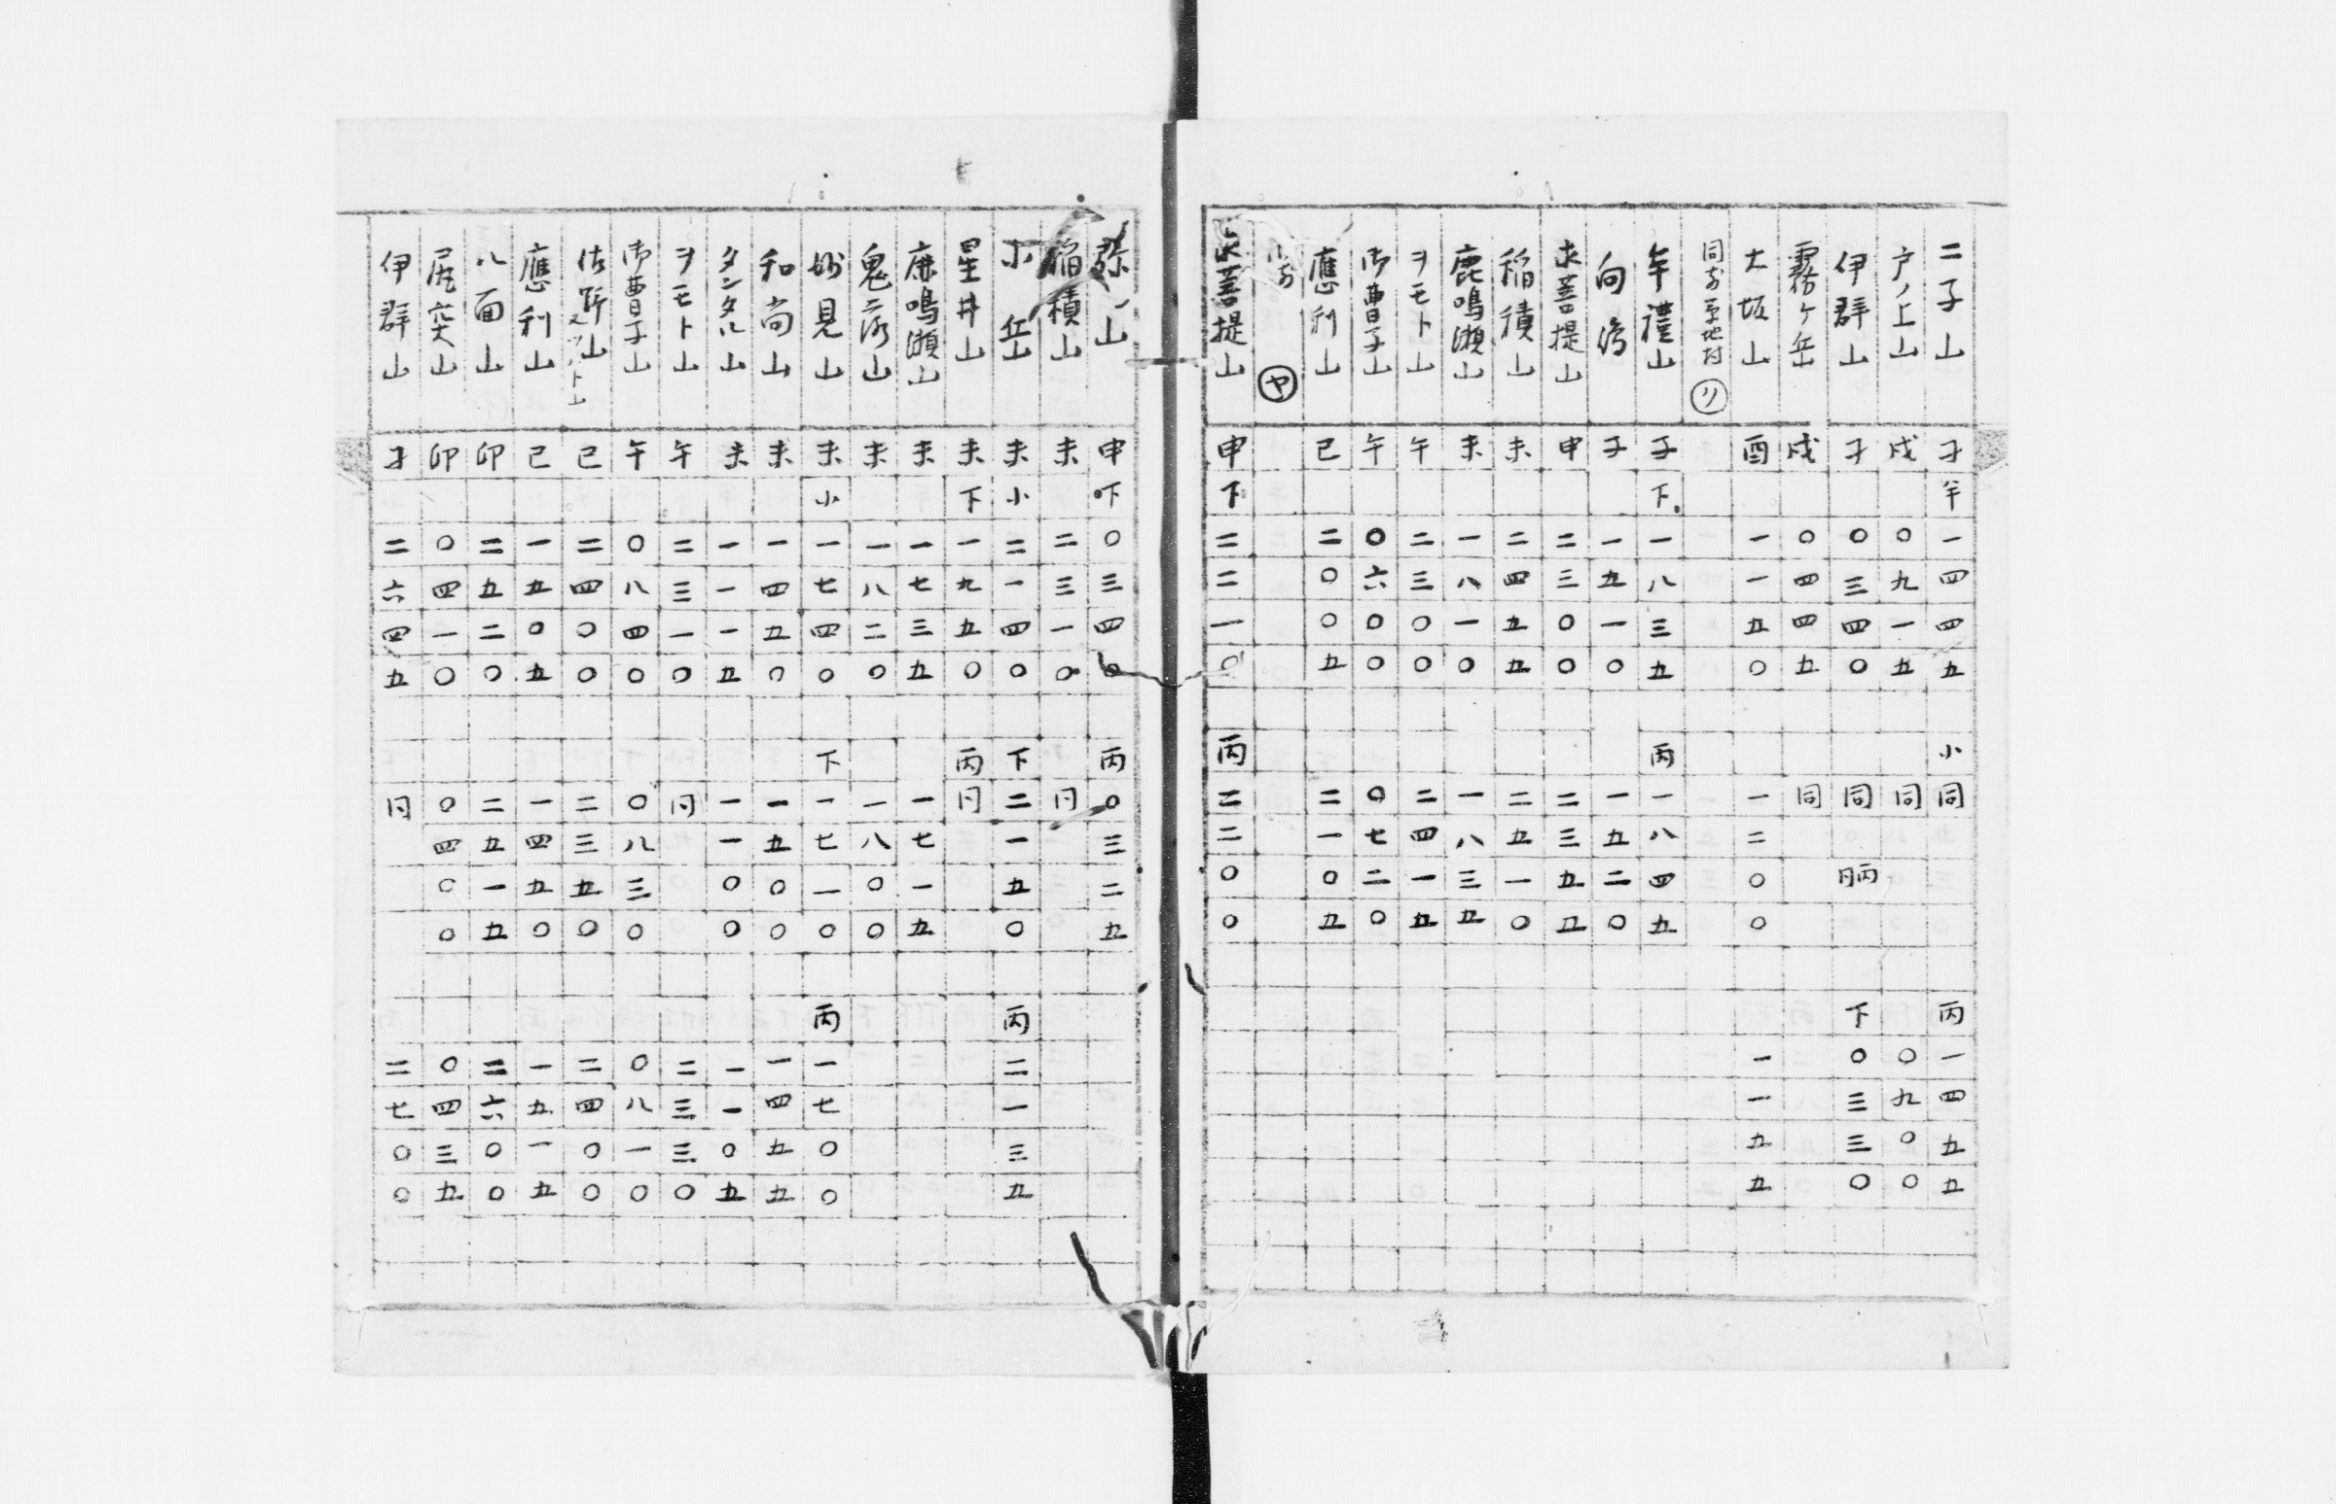 二子山 子 半 一四四五 小 同 丙 一四五五
戸ノ上山 戌 〇九一五 同 〇九〇〇
伊群山 子 〇三四〇 同 丙同 下 〇三三〇
霧ケ岳 戌 〇四四五 同
大坂山 酉 一一五〇 一二〇〇 一一五五
同 村 リ
牟禮山 子 下 一八三五 丙 一八四五
向 子 一五一〇 一五二〇
求菩提山 申 二三〇〇 二三五五
稲積山 未 二四五五 二五一〇
鹿鳴瀬山 未 一八一〇 一八三五
ヲモト山 午 二三〇〇 二四一五
御曹子山 午 〇六〇〇 〇七二〇
應利山 巳 二〇〇五 二一〇五
ヤ
求菩提山 申 下 二二一〇 丙 二二〇〇
弥山 申 下 〇三四〇 丙 〇三二五
稲積山 未 二三一〇 同
小岳 未 小 二一四〇 下 二一五〇 丙 二一三五
星井山 未 下 一九五〇 丙 同
鹿鳴瀬山 未 一七三五 一七一五
鬼落山 未 一八二〇 一八〇〇
妙見山 未 小 一七四〇 下 一七一〇 丙 一七〇〇
和尚山 未 一四五〇 一五〇〇 一四五五
タンタル山 未 一一一五 一一〇〇 一一〇五
ヲモト山 午 二三一〇 同 二三三〇
御曹子山 午 〇八四〇 〇八三〇 〇八一〇
佐野山 巳 二四〇〇 二三五〇 二四〇〇
應利山 巳 一五〇五 一四五〇 一五一五
八面山 卯 二五二〇 二五一五 二六〇〇
尻突山 卯 〇四一〇 〇四〇〇 〇四三五
伊群山 子 二六四五 同 二七〇〇